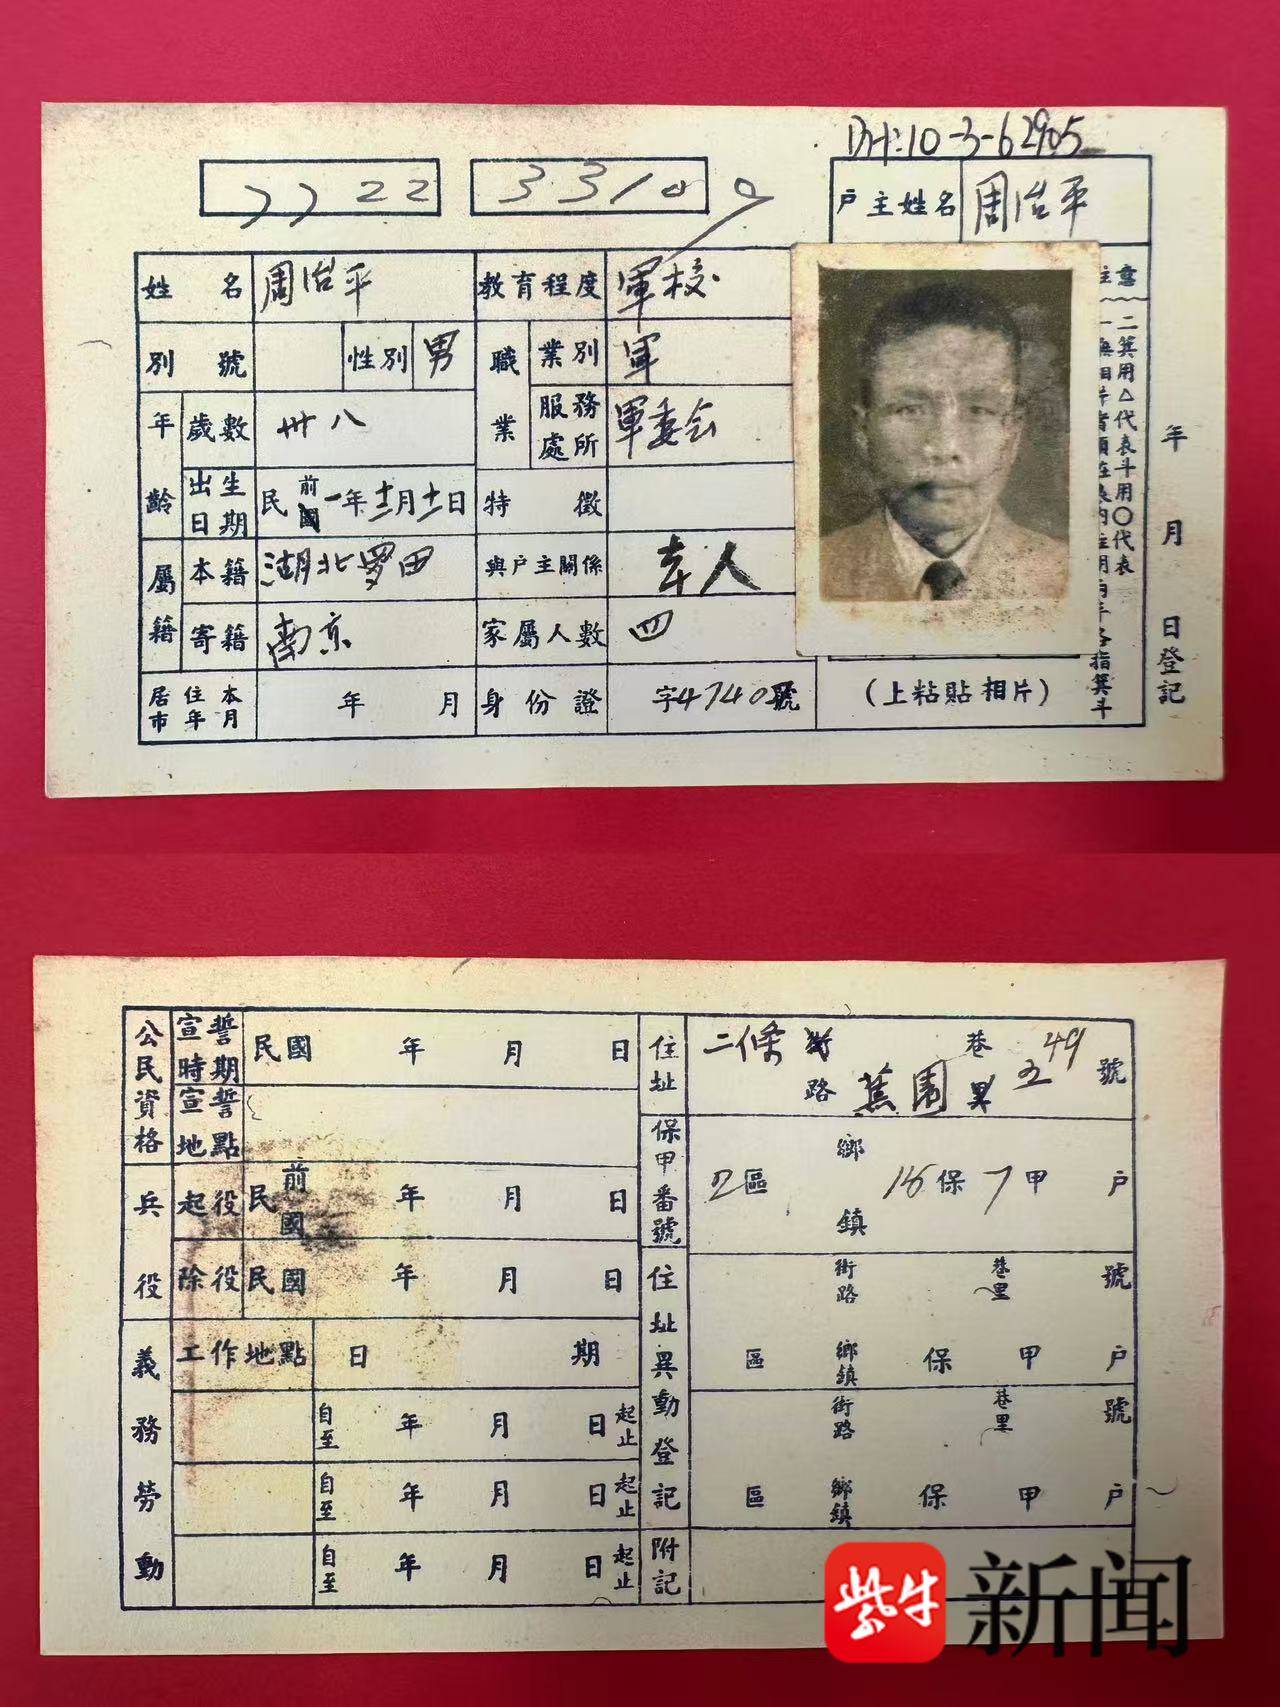 7722 33100
户主姓名 周治平
姓名 周治平 教育程度 軍校
別號 性別 男 職業 業別 軍
年齡 歲數 卅八 服務處所 軍委会
出生日期 民前國一年十二月十一日 特徵
屬籍 本籍 湖北罗田 與户主關係 本人
寄籍 南京 家屬人數 四
居住本市年月 年 月 身份證 字4740號
(上粘貼相片)
二箕用△代表斗用○代表
年 月 日登記
公民資格 宣誓時期 民國 年 月 日
宣誓地點
住址 二條 街路 巷里 蕉園 五 49 號
兵役 起役 民前國 年 月 日
保甲番號 2區 鄉鎮 16保 7甲 户
除役 民國 年 月 日
住址異動登記 街路 巷里 號
義務勞動 工作地點 日期
區 鄉鎮 保 甲 户
自至 年 月 日 起止
街路 巷里 號
自至 年 月 日 起止
區 鄉鎮 保 甲 户
自至 年 月 日 起止
附記
紫牛新闻